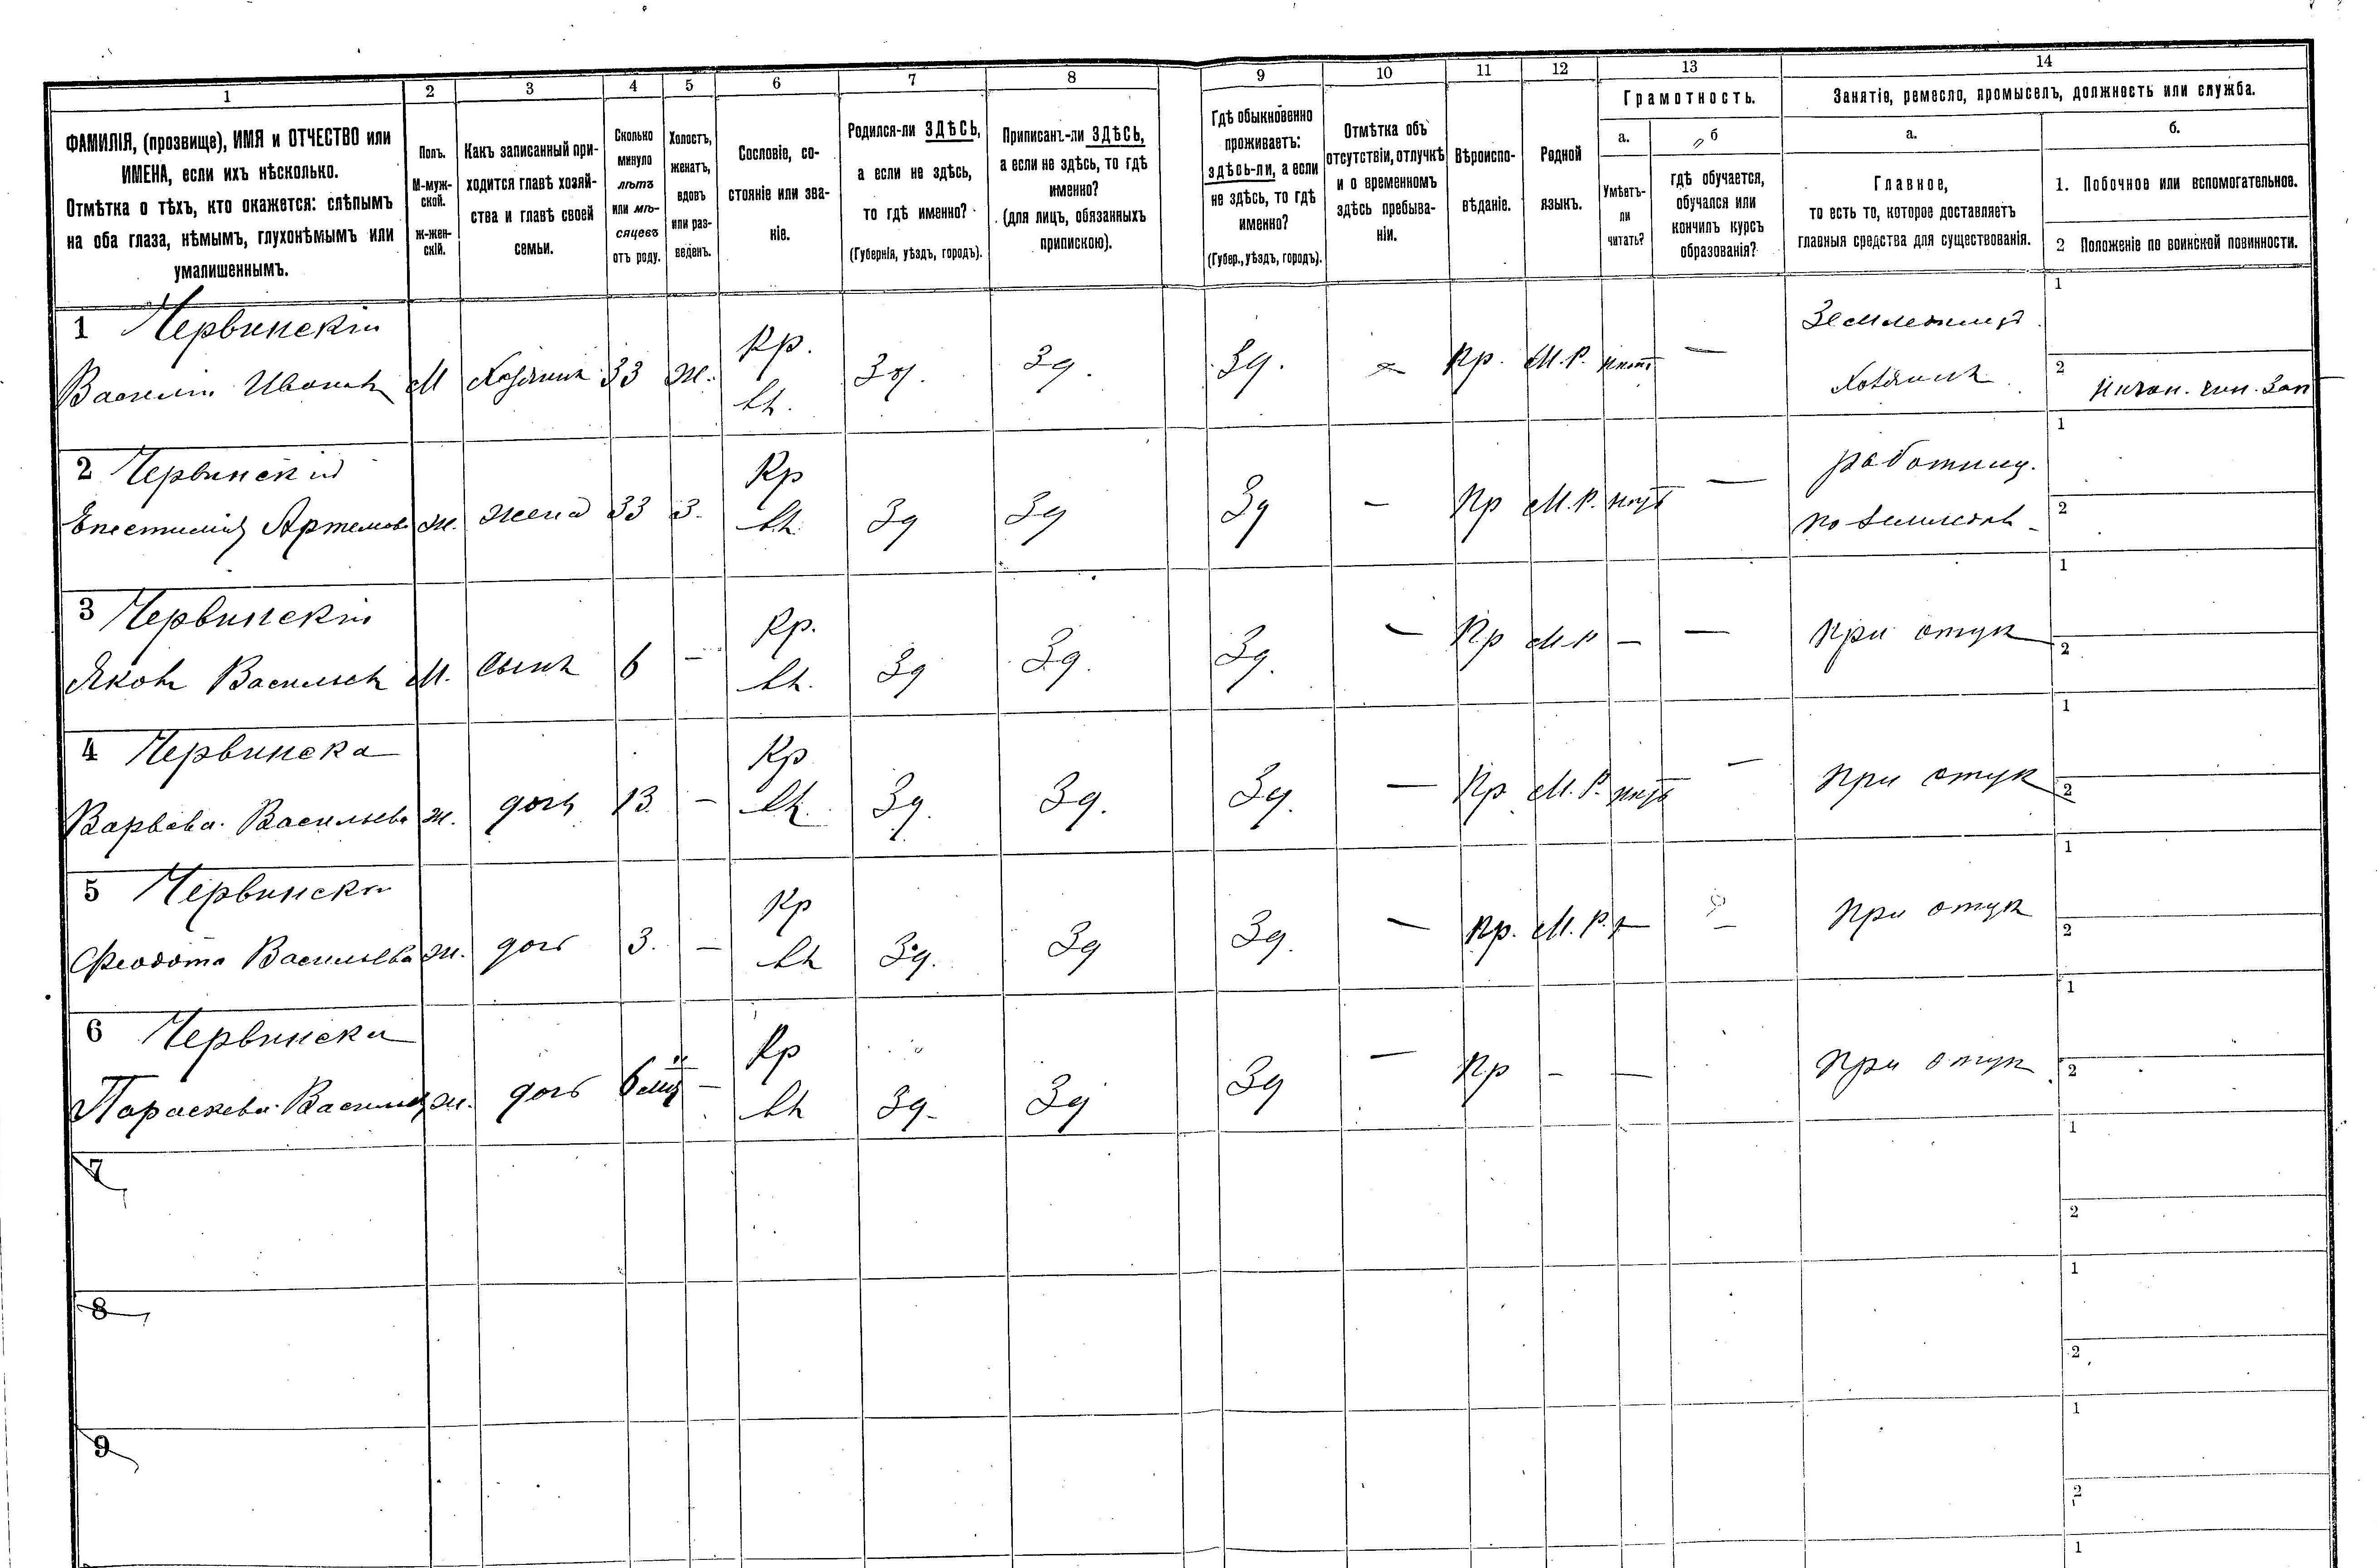 1
2
3
4
5
6
7
8
9
10
11
12
13
14
ФАМИЛІЯ, (прозвище), ИМЯ и ОТЧЕСТВО или
ИМЕНА, если ихъ нѣсколько.
Отмѣтка о тѣхъ, кто окажется: слѣпымъ
на оба глаза, нѣмымъ, глухонѣмымъ или
умалишеннымъ.
Полъ.
М-муж-
ской.
Ж-жен-
скій.
Какъ записанный при-
ходится главѣ хозяй-
ства и главѣ своей
семьи.
Сколько
минуло
лѣтъ
или мѣ-
сяцевъ
отъ роду.
Холостъ,
женатъ,
вдовъ
или раз-
веденъ.
Сословіе, со-
стояніе или зва-
ніе.
Родился-ли ЗДѢСЬ,
а если не здѣсь,
то гдѣ именно?
(Губернія, уѣздъ, городъ).
Приписанъ-ли ЗДѢСЬ,
а если не здѣсь, то гдѣ
именно?
(для лицъ, обязанныхъ
припискою).
Гдѣ обыкновенно
проживаетъ:
здѣсь-ли, а если
не здѣсь, то гдѣ
именно?
(Губер., уѣздъ, городъ).
Отмѣтка объ
отсутствіи, отлучкѣ
и о временномъ
здѣсь пребыва-
ніи.
Вѣроиспо-
вѣданіе.
Родной
языкъ.
Грамотность.
а.
Умѣетъ-
ли
читать?
б
гдѣ обучается,
обучался или
кончилъ курсъ
образованія?
Занятіе, ремесло, промыселъ, должность или служба.
а.
Главное,
то есть то, которое доставляетъ
главныя средства для существованія.
б.
1. Побочное или вспомогательное.
2 Положеніе по воинской повинности.
1 Червинскій
Василій Иванов М Хозяинъ 33 ж. Кр. Зд. Зд. Зд. Пр. М.Р. нѣтъ — Хозяинъ
1
2
2 Червинскій
Артемова ж. жена 33 З. Кр Зд Зд Зд — Пр М.Р. нѣтъ — работниц.
1
2
3 Червинскій
Яковъ Васильевъ М. сынъ 6 — Кр. Зд Зд. Зд. — Пр М.Р — — при отцѣ
1
2
4 Червинска
Варвара Васильева ж. дочь 13. — Кр Зд. Зд. Зд. — Пр М.Р. нѣтъ — при отцѣ
1
2
5 Червинска
Васильева ж. дочь 3. — Кр Зд. Зд Зд. — Пр. М.Р. — — при отцѣ
1
2
6 Червинска
Параскева ж. дочь 6 — Кр Зд. Зд Зд — Пр — — при отцѣ
1
2
7
1
2
8
1
2
9
1
2
1